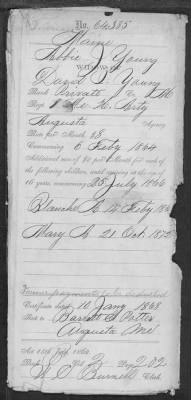 No. 64,385
Maine
Abbie J. Young
WIDOW OF
David S. Young
Rank Private Co.
Regt. 1 Me. H. Arty
Augusta Agency
Rate per Month $8
Commencing 6 Feby 1864
Additional sum of $2 per month for each of
the following children, until arriving at the age of
16 years, commencing 25 July 1866
Blanche 4 Feby
Mary 21 Oct. 1872
Former payments to be deducted
Certificate dated 10 Jany 1868
Sent to Barrett & Potter
Augusta Me
Act 14th July 1862.
Book Vol. 2 Page 202
Clerk